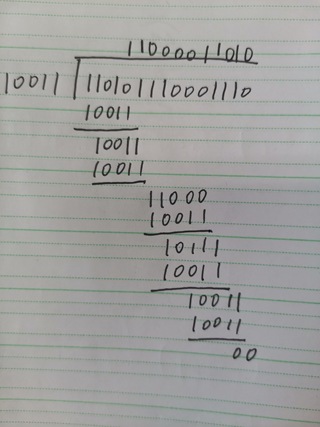 11000011010
10011 110101110001110
10011
10011
10011
11000
10011
10111
10011
10011
10011
00